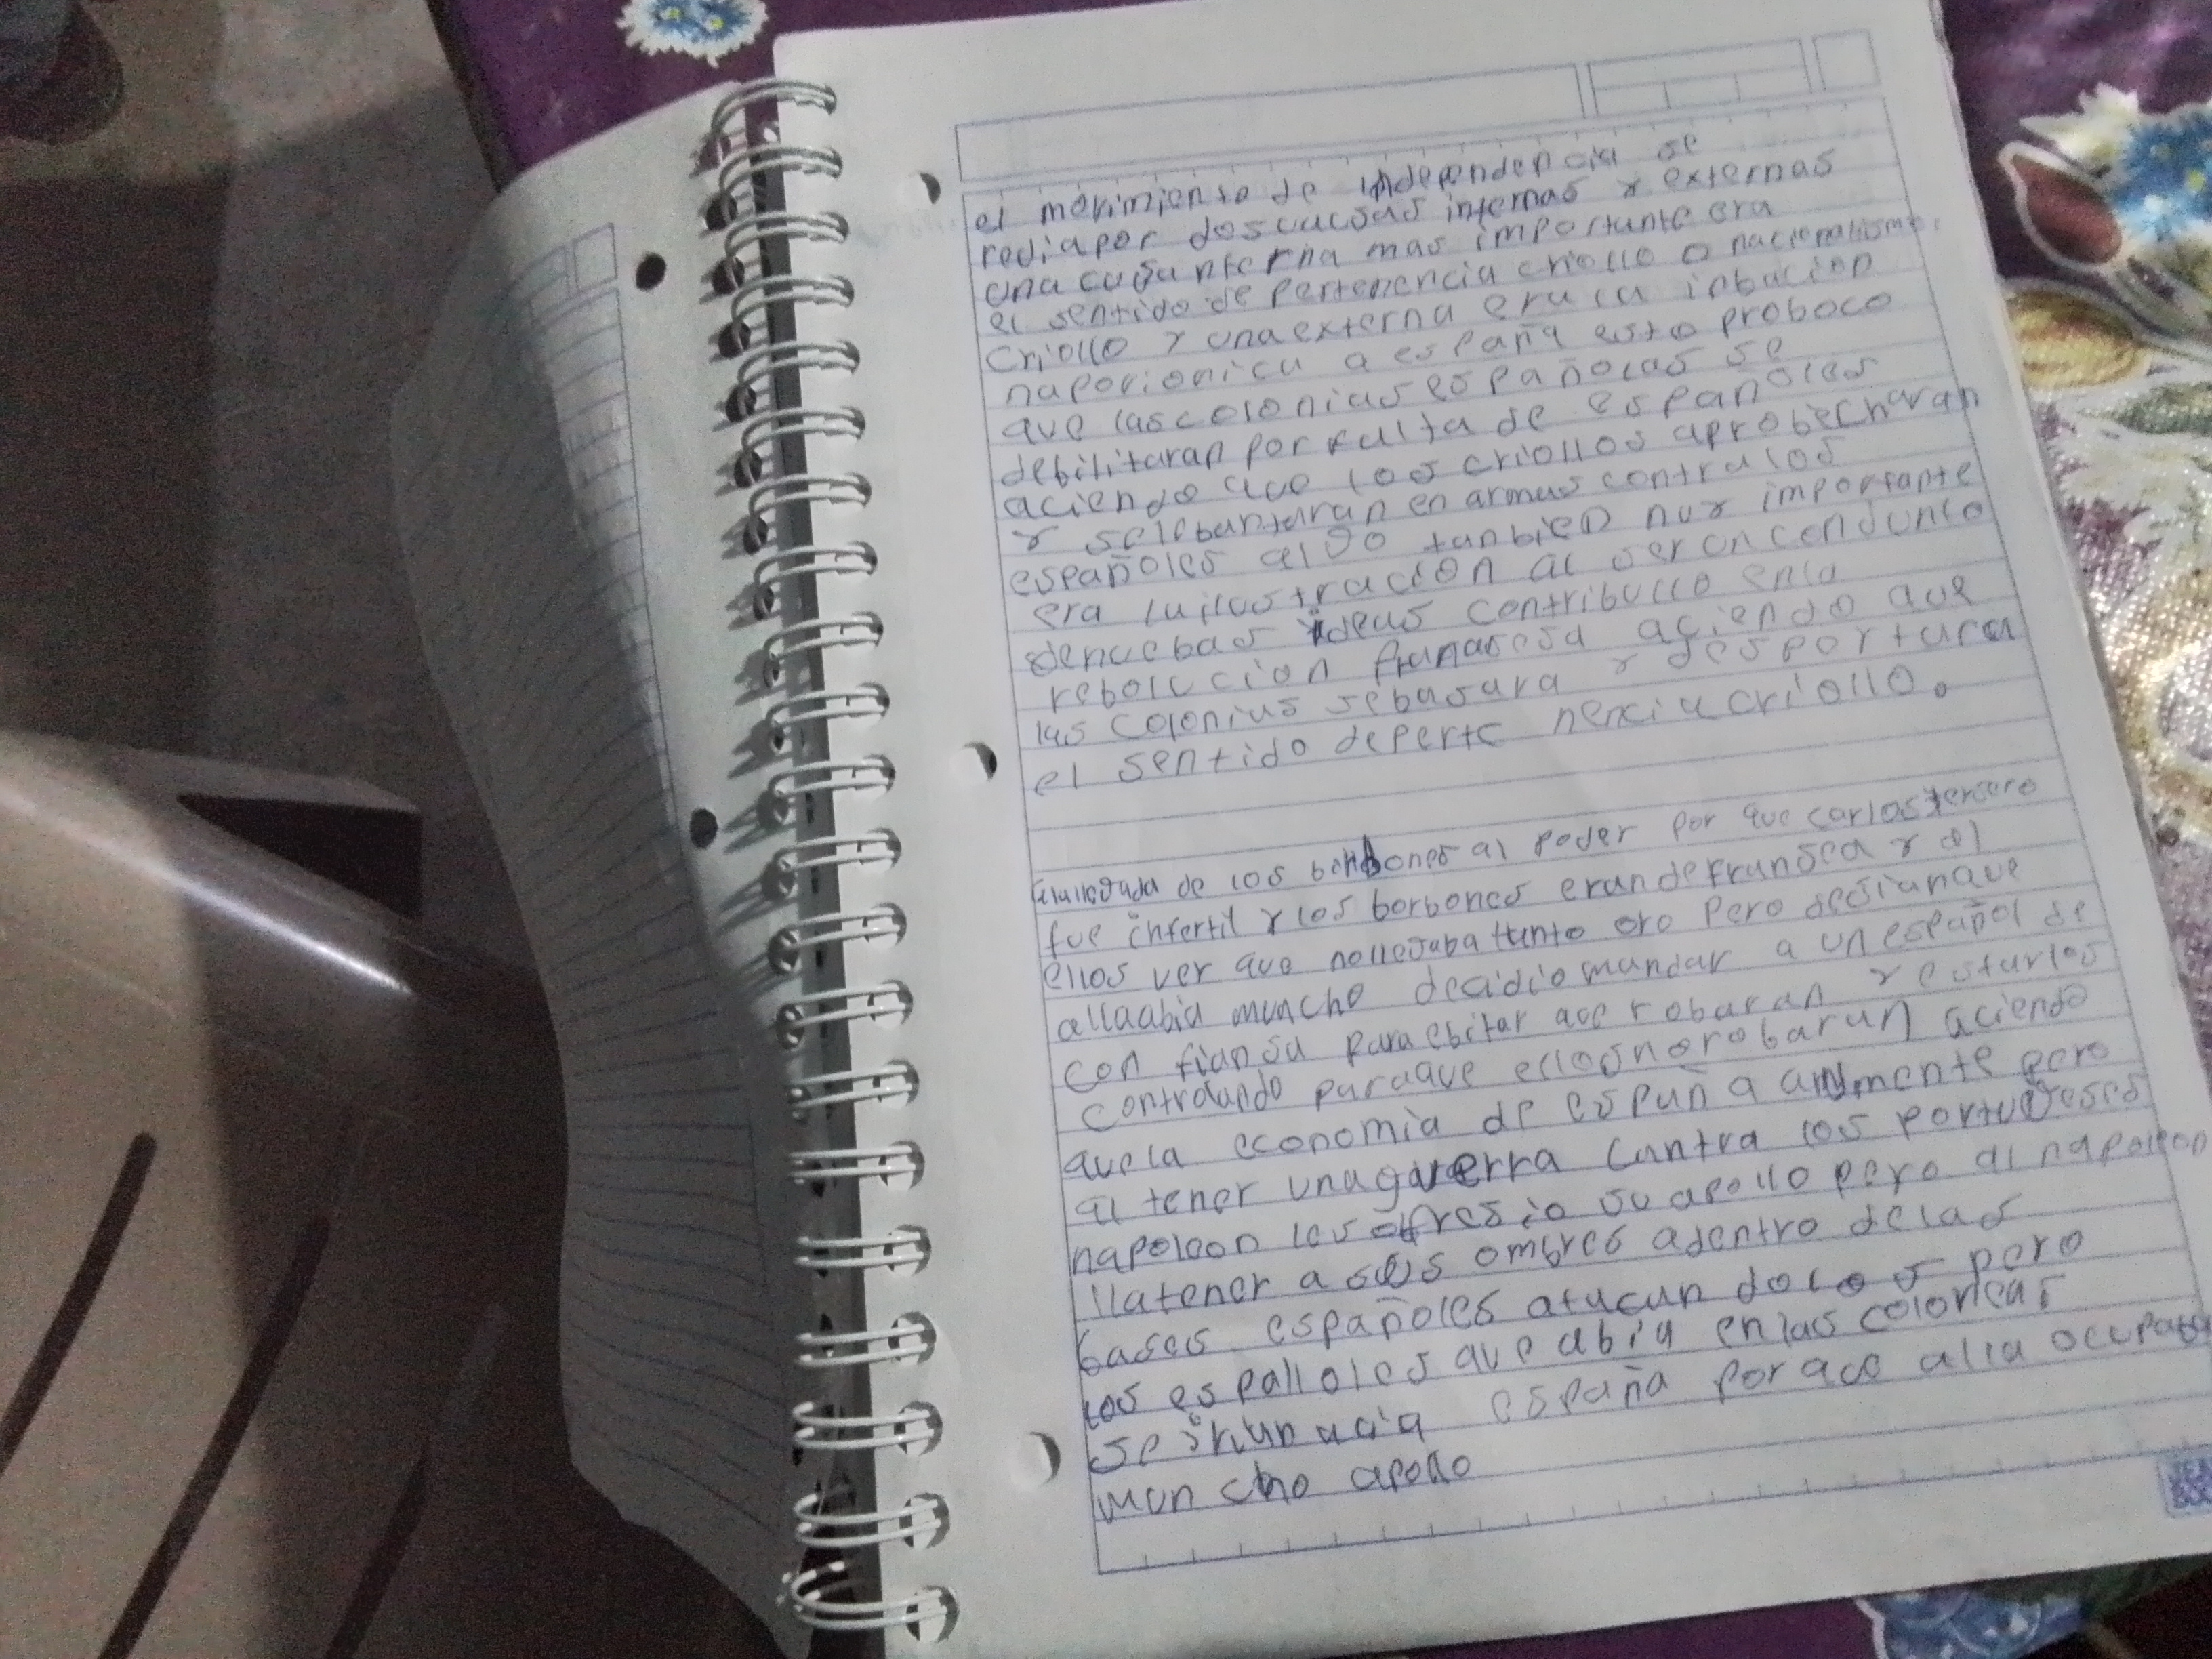 el movimiento de independencia se
redia por dos cucsas internas y externas
una cusa nterna mas importante era
el sentido de pertenencia criollo o nacionalismo
criollo y una externa era la inbacion
naporionica a españa esto proboco
que las colonias españolas se
debilitaran por falta de españoles
aciendo que los criollos aprobecharan
y se lebantaran en armas contra los
españoles algo tanbien muy importante
era la ilustracion al ser un condunto
de nuebas ideas contribullo en la
rebolucion aciendo que
las colonias sebasara y despertara
el sentido de perte nencia criollo.
la llegada de los borbones al poder por que carlos tersero
fue infertil y los borbones eran de fransea y al
ellos ver que no llegaba tanto oro pero desian que
alla abia muncho decidio mandar a un español de
con fiansa para ebitar que robaran y estarlos
controlando para que ellos no robaran aciendo
que la economia de españa aumente pero
al tener una guerra contra los portugeses
napoleon les ofresio su apollo pero al napoleon
lla tener a sus ombres adentro de las
bases españoles atacan dolos pero
los espalloles que abia en las colonias
se iban acia españa por que alla ocupaba
muncho apollo